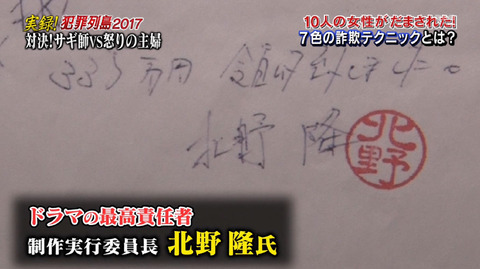 実録!犯罪列島2017
対決!サギ師VS怒りの主婦
10人の女性がだまされた!
7色の詐欺テクニックとは?
335万円 領収致しました
北野 隆
北野
ドラマの最高責任者
制作実行委員長 北野 隆氏